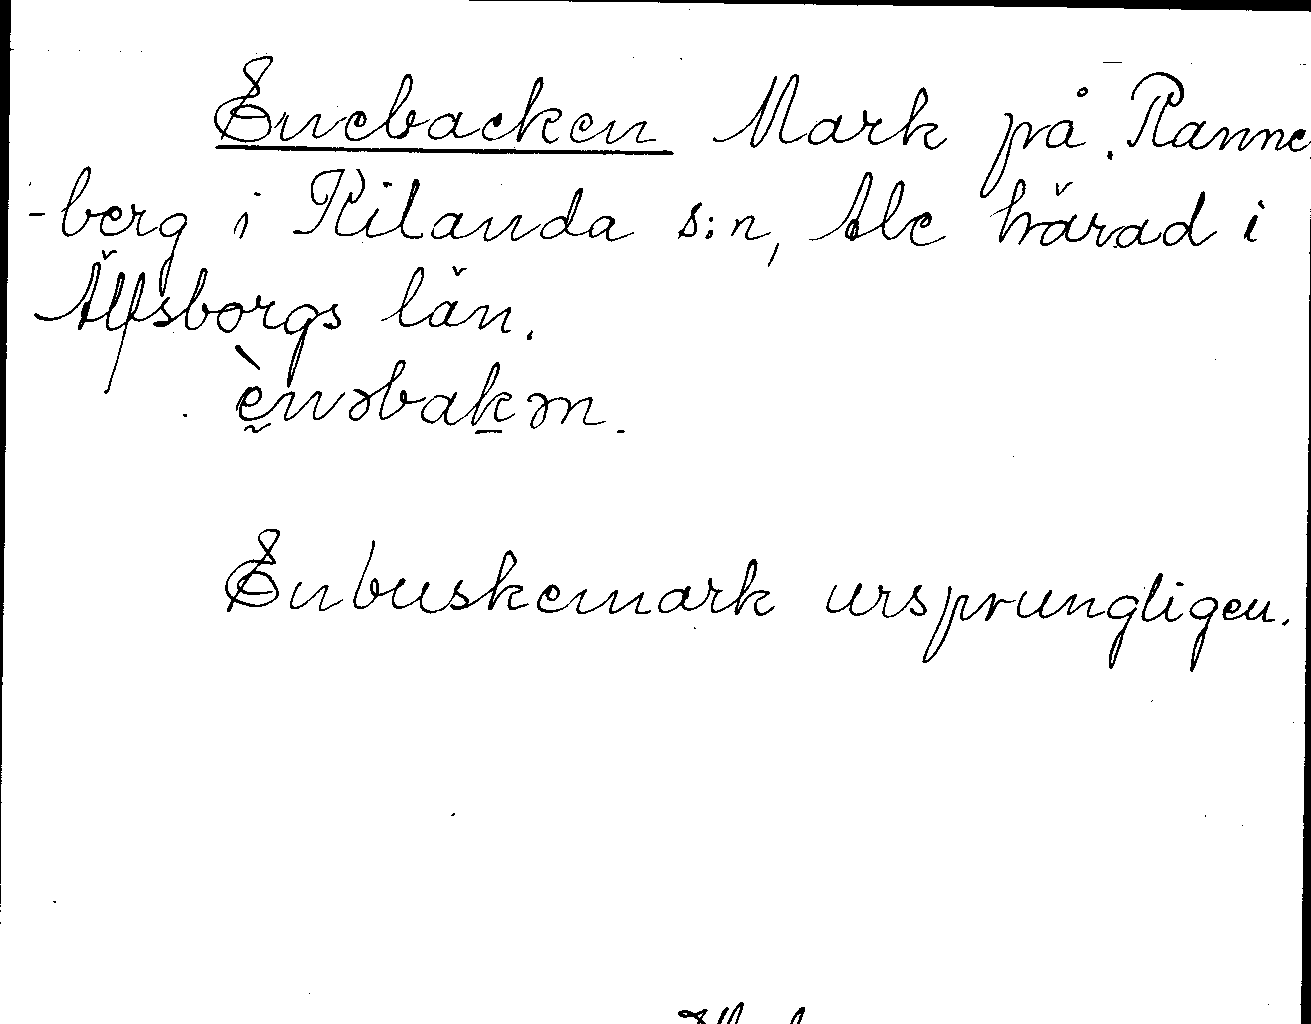 Enebacken Mark på Ranne
-berg i Kilanda s:n, Ale härad i
Älfsborgs län.
ènəbakən.
Enbuskemark ursprungligen.